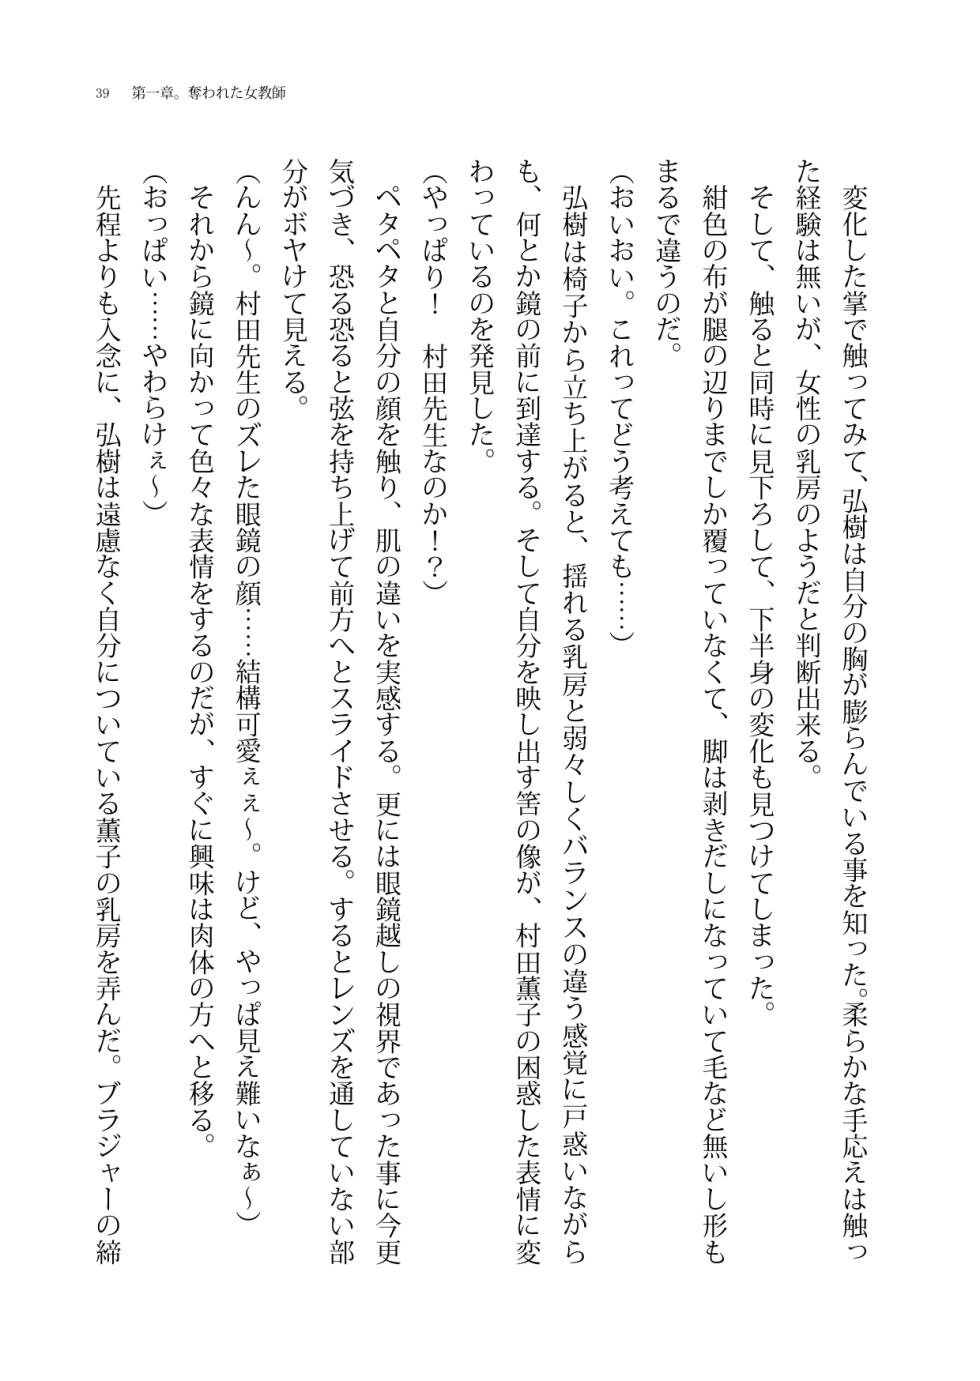 39 第一章。奪われた女教師
　変化した掌で触ってみて、弘樹は自分の胸が膨らんでいる事を知った。柔らかな手応えは触っ
た経験は無いが、女性の乳房のようだと判断出来る。
　そして、触ると同時に見下ろして、下半身の変化も見つけてしまった。
　紺色の布が腿の辺りまでしか覆っていなくて、脚は剥きだしになっていて毛など無いし形も
まるで違うのだ。
（おいおい。これってどう考えても……）
　弘樹は椅子から立ち上がると、揺れる乳房と弱々しくバランスの違う感覚に戸惑いながら
も、何とか鏡の前に到達する。そして自分を映し出す筈の像が、村田薫子の困惑した表情に変
わっているのを発見した。
（やっぱり！　村田先生なのか！？）
　ペタペタと自分の顔を触り、肌の違いを実感する。更には眼鏡越しの視界であった事に今更
気づき、恐る恐ると弦を持ち上げて前方へとスライドさせる。するとレンズを通していない部
分がボヤけて見える。
（んん～。村田先生のズレた眼鏡の顔……結構可愛ぇぇ～。けど、やっぱ見え難いなぁ～）
　それから鏡に向かって色々な表情をするのだが、すぐに興味は肉体の方へと移る。
（おっぱい……やわらけぇ～）
　先程よりも入念に、弘樹は遠慮なく自分についている薫子の乳房を弄んだ。ブラジャーの締